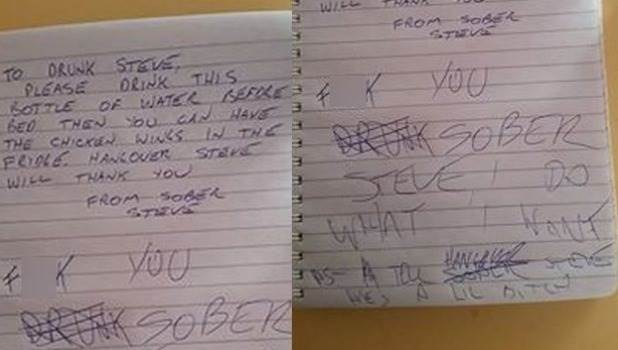 TO DRUNK STEVE,
PLEASE DRINK THIS
BOTTLE OF WATER BEFORE
BED THEN YOU CAN HAVE
THE CHICKEN WINGS IN THE
FRIDGE. HANGOVER STEVE
WILL THANK YOU
FROM SOBER
STEVE
F K YOU
DRUNK SOBER
WILL THANK YOU
FROM SOBER
STEVE
F K YOU
DRUNK SOBER
STEVE, I DO
WHAT I WANT
PS- HANGOVER STEVE
HES A LIL BITCH